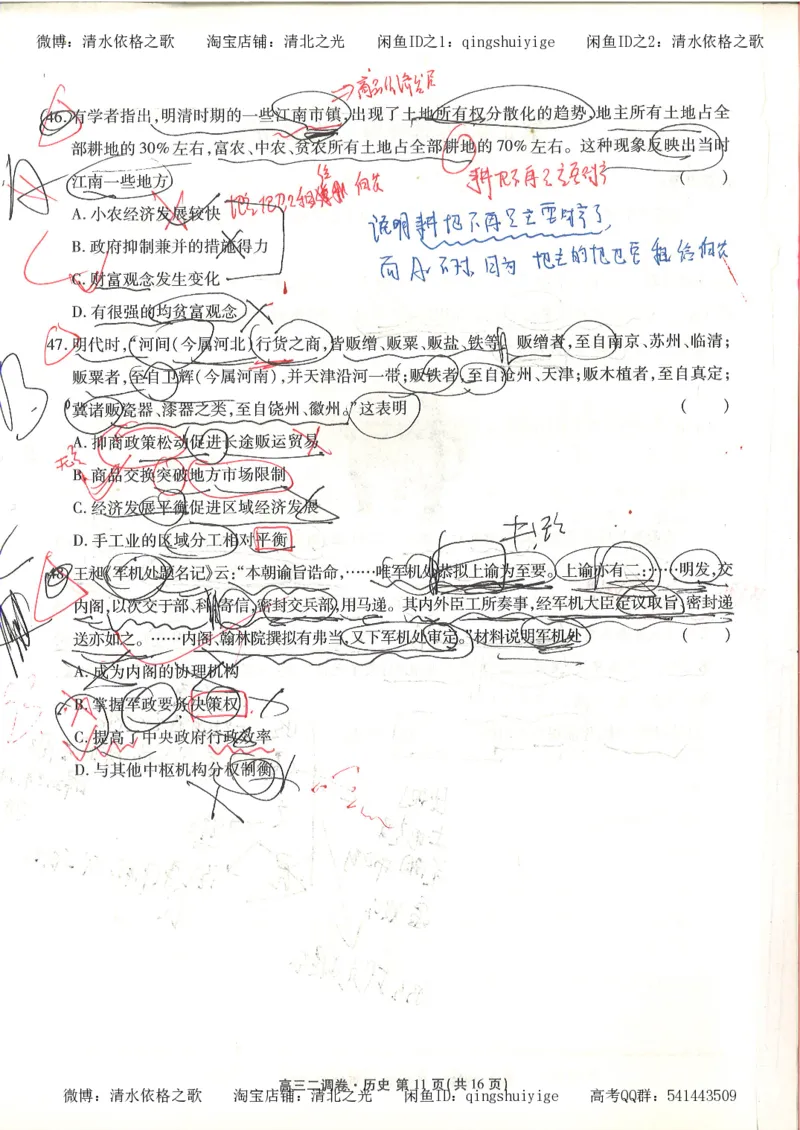 微博：清水依格之歌 淘宝店铺：清北之光 闲鱼ID之1：qingshuiyige 闲鱼ID之2：清水依格之歌
46. 有学者指出，明清时期的一些江南市镇，出现了土地所有权分散化的趋势，地主所有土地占全
部耕地的30%左右，富农、中农、贫农所有土地占全部耕地的70%左右。这种现象反映出当时
江南一些地方 （ ）
A. 小农经济发展较快
说明耕地不再是主要财富了
B. 政府抑制兼并的措施得力
而A不对，因为地主的地也要租给佃农
C. 财富观念发生变化
D. 有很强的均贫富观念
47. 明代时，“河间（今属河北）行货之商，皆贩缯、贩粟、贩盐、铁等。贩缯者，至自南京、苏州、临清；
贩粟者，至自卫辉（今属河南），并天津沿河一带；贩铁者，至自沧州、天津；贩木植者，至自真定；
冀诸贩瓷器、漆器之类，至自饶州、徽州。”这表明 （ ）
A. 抑商政策松动促进长途贩运贸易
B. 商品交换突破地方市场限制
C. 经济发展平衡促进区域经济发展
D. 手工业的区域分工相对平衡
48. 王昶《军机处题名记》云：“本朝谕旨诰命，……唯军机处恭拟上谕为至要。上谕亦有二：……明发，交
内阁，以次交于部、科；寄信，密封交兵部，用马递。其内外臣工所奏事，经军机大臣定议取旨，密封递
送亦如之。……内阁、翰林院撰拟有弗当，又下军机处审定。”材料说明军机处 （ ）
A. 成为内阁的协理机构
B. 掌握军政要务决策权
C. 提高了中央政府行政效率
D. 与其他中枢机构分权制衡
高三二调卷·历史 第11页（共16页）
微博：清水依格之歌 淘宝店铺：清北之光 闲鱼ID：qingshuiyige 高考QQ群：541443509